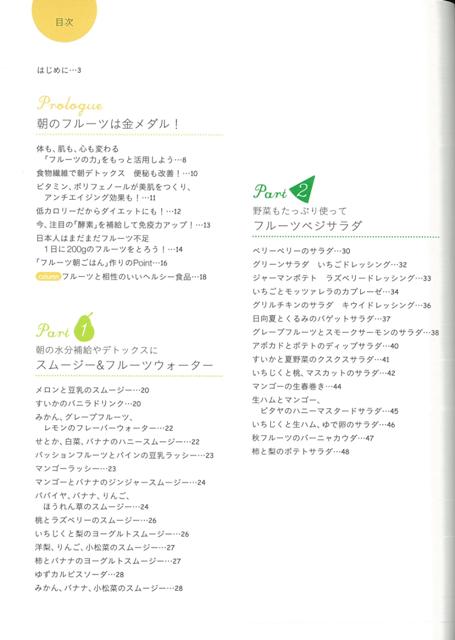 目次
はじめに…3
Prologue
朝のフルーツは金メダル！
体も、肌も、心も変わる
「フルーツの力」をもっと活用しよう…8
食物繊維で朝デトックス 便秘も改善！…10
ビタミン、ポリフェノールが美肌をつくり、
アンチエイジング効果も！…11
低カロリーだからダイエットにも！…12
今、注目の「酵素」を補給して免疫力アップ！…13
日本人はまだまだフルーツ不足
1日に200gのフルーツをとろう！…14
「フルーツ朝ごはん」作りのPoint…16
column フルーツと相性のいいヘルシー食品…18
Part 1
朝の水分補給やデトックスに
スムージー&フルーツウォーター
メロンと豆乳のスムージー…20
すいかのバニラドリンク…20
みかん、グレープフルーツ、
レモンのフレーバーウォーター…22
せとか、白菜、バナナのハニースムージー…22
パッションフルーツとパインの豆乳ラッシー…23
マンゴーラッシー…23
マンゴーとバナナのジンジャースムージー…24
パパイヤ、バナナ、りんご、
ほうれん草のスムージー…24
桃とラズベリーのスムージー…26
いちじくと梨のヨーグルトスムージー…26
洋梨、りんご、小松菜のスムージー…27
柿とバナナのヨーグルトスムージー…27
ゆずカルピスソーダ…28
みかん、バナナ、小松菜のスムージー…28
Part 2
野菜もたっぷり使って
フルーツベジサラダ
ベリーベリーのサラダ…30
グリーンサラダ いちごドレッシング…32
ジャーマンポテト ラズベリードレッシング…33
いちごとモッツァレラのカプレーゼ…34
グリルチキンのサラダ キウイドレッシング…36
日向夏とくるみのバゲットサラダ…37
グレープフルーツとスモークサーモンのサラダ…38
アボカドとポテトのディップサラダ…40
すいかと夏野菜のクスクスサラダ…41
いちじくと桃、マスカットのサラダ…42
マンゴーの生春巻き…44
生ハムとマンゴー、
ピタヤのハニーマスタードサラダ…45
いちじくと生ハム、ゆで卵のサラダ…46
秋フルーツのバーニャカウダ…47
柿と梨のポテトサラダ…48